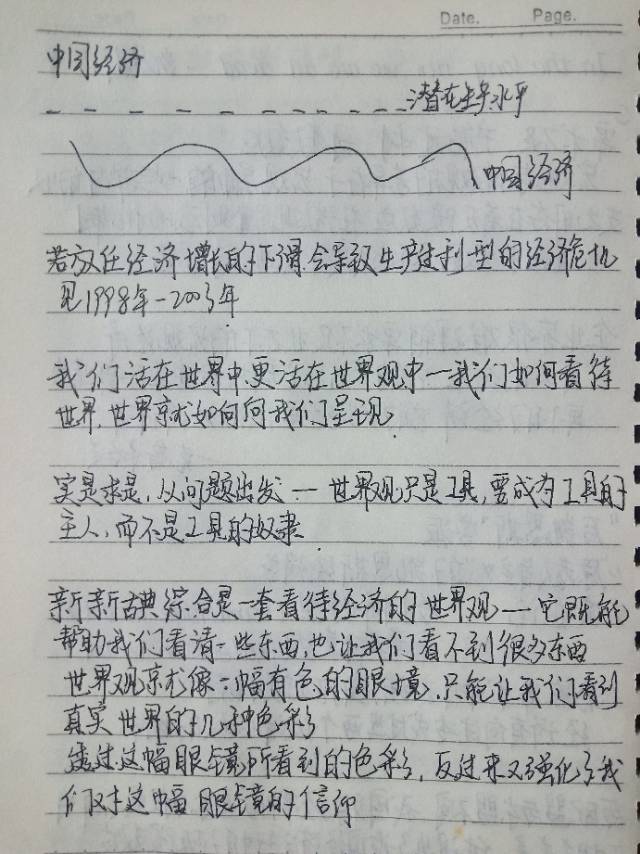 Date.  Page.
中国经济
潜在生产水平
中国经济
若放任经济增长的下滑.会导致生产过剩型的经济危机
见1998年-2003年
我们活在世界中.更活在世界观中—我们如何看待
世界,世界就如何向我们呈现
实是求是,从问题出发—世界观只是工具,要成为工具的
主人,而不是工具的奴隶
新新古典综合是一套看待经济的世界观—它既能
帮助我们看清一些东西,也让我们看不到很多东西
世界观就像一幅有色的眼境,只能让我们看到
真实世界的几种色彩
透过这幅眼镜所看到的色彩,反过来又强化了我
们对这幅眼镜的信仰